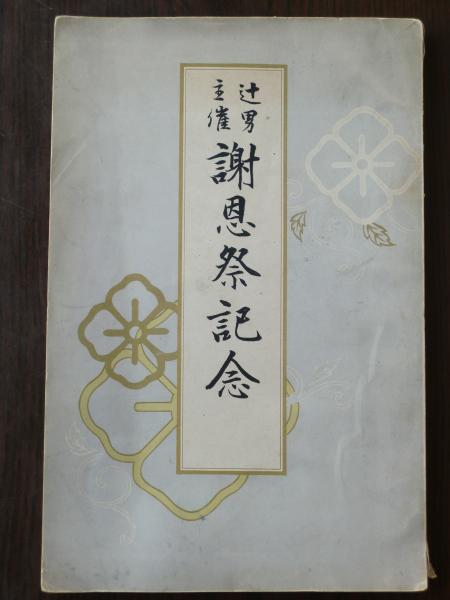 辻男
主催
謝恩祭記念